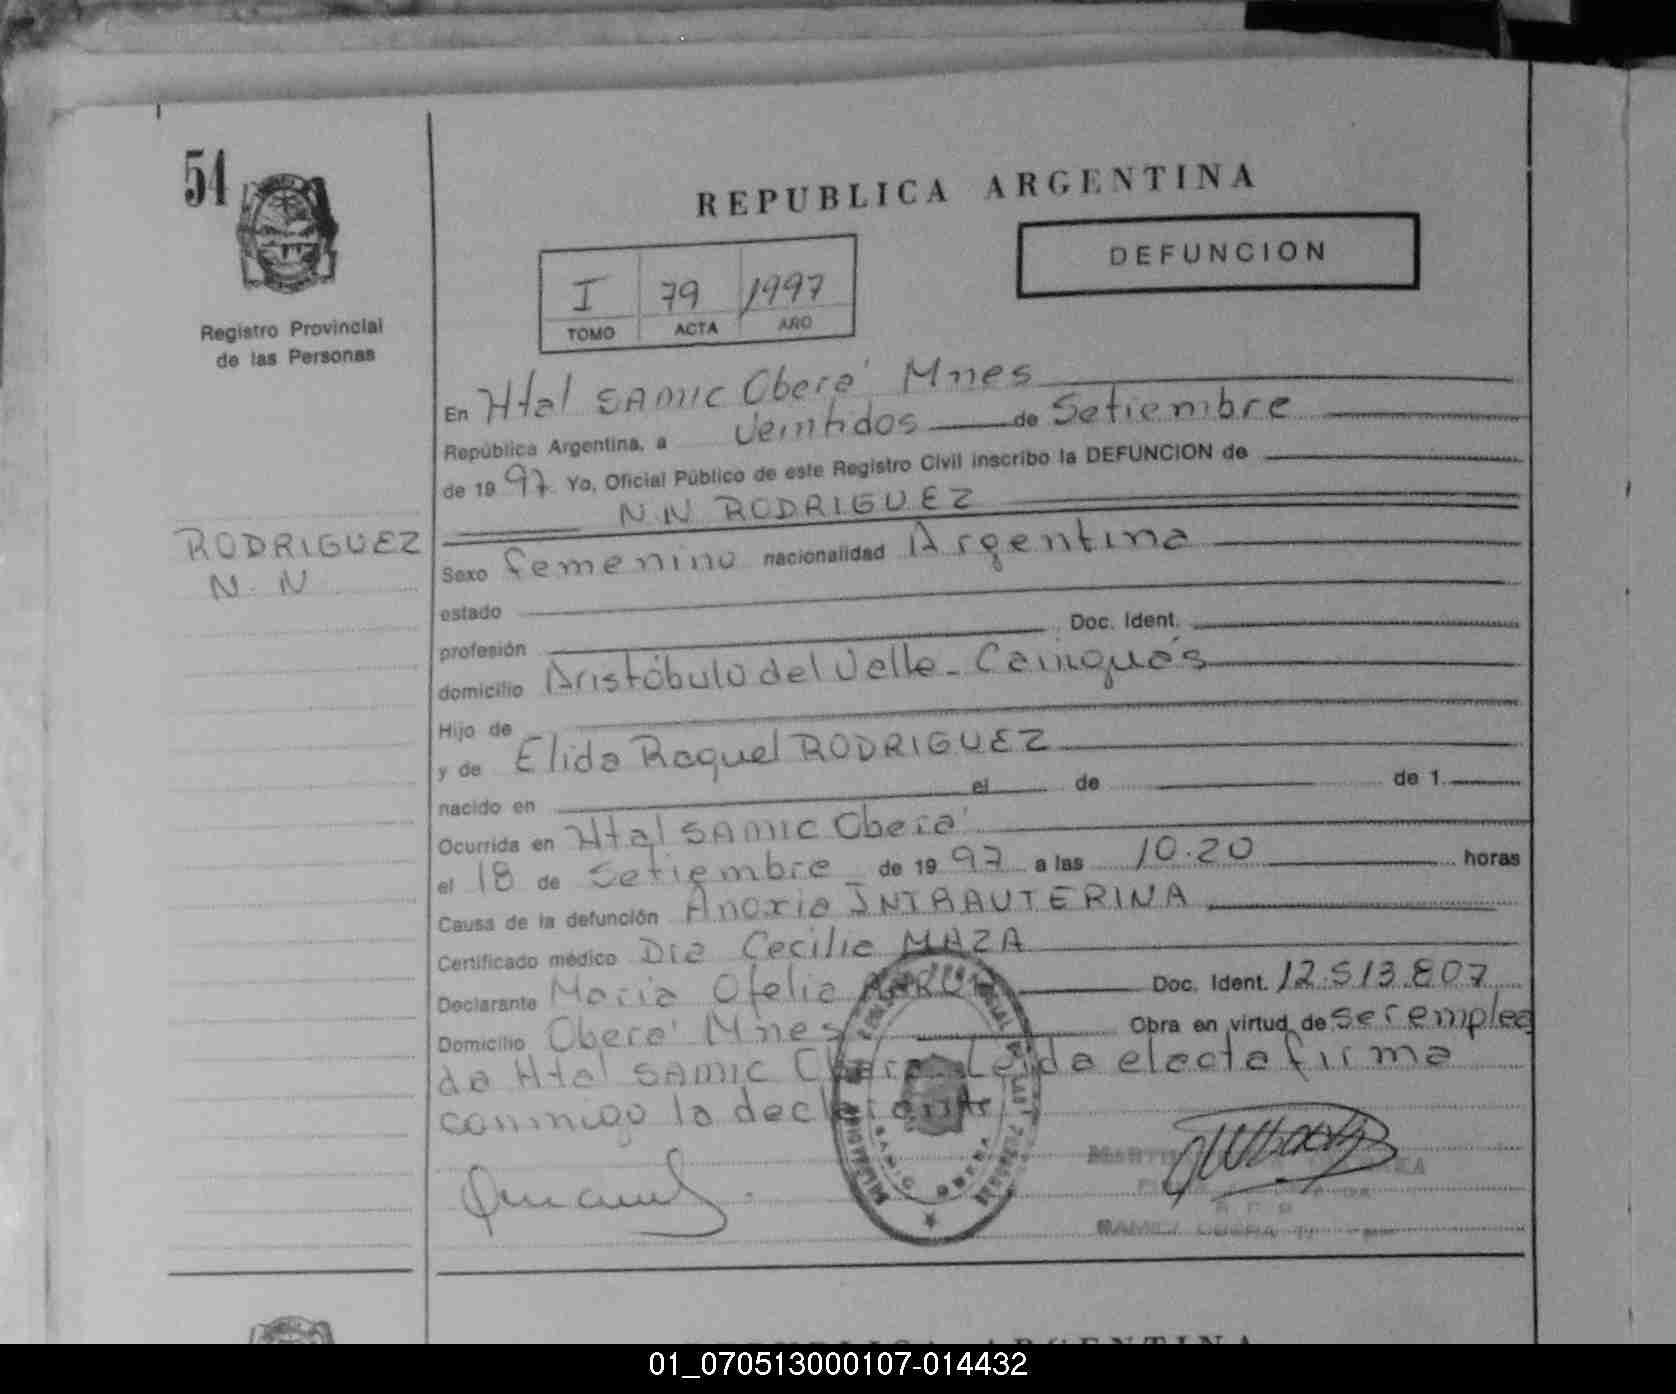 54
REPUBLICA ARGENTINA
DEFUNCION
I 79 1997
TOMO ACTA AÑO
Registro Provincial
de las Personas
En Htal SAMIC Oberá Mnes
República Argentina, a Veintidos de Setiembre
de 1997 Yo, Oficial Público de este Registro Civil inscribo la DEFUNCION de
N.N RODRIGUEZ
RODRIGUEZ
N.N
Sexo femenino nacionalidad Argentina
estado
profesión Doc. Ident.
domicilio Aristóbulo del Valle - Cainguás
Hijo de
y de Elida Raquel RODRIGUEZ
nacido en el de de 1
Ocurrida en Htal SAMIC Oberá
el 18 de Setiembre de 1997 a las 10.20 horas
Causa de la defunción Anoxia INTRAUTERINA
Certificado médico Dra Cecilia MAZA
Declarante Maria Ofelia Doc. Ident. 12.513.807
Domicilio Oberá Mnes Obra en virtud de ser emplea
da Htal SAMIC Oberá Leida el acta firma
conmigo la declarante
SAMIC OBERA
REPUBLICA ARGENTINA
01_070513000107-014432